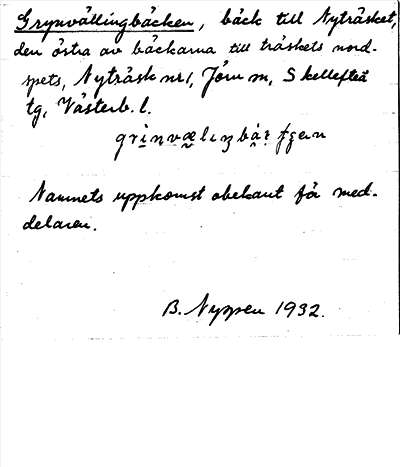 Grynvällingbäcken, bäck till Nyträsket,
den östra av bäckarna till träskets nord-
spets, Nyträsk nr 1, Jörn sn, Skellefteå
tg, Västerb. l.
Namnets uppkomst obekant för med-
delaren.
B. Nyppen 1932.